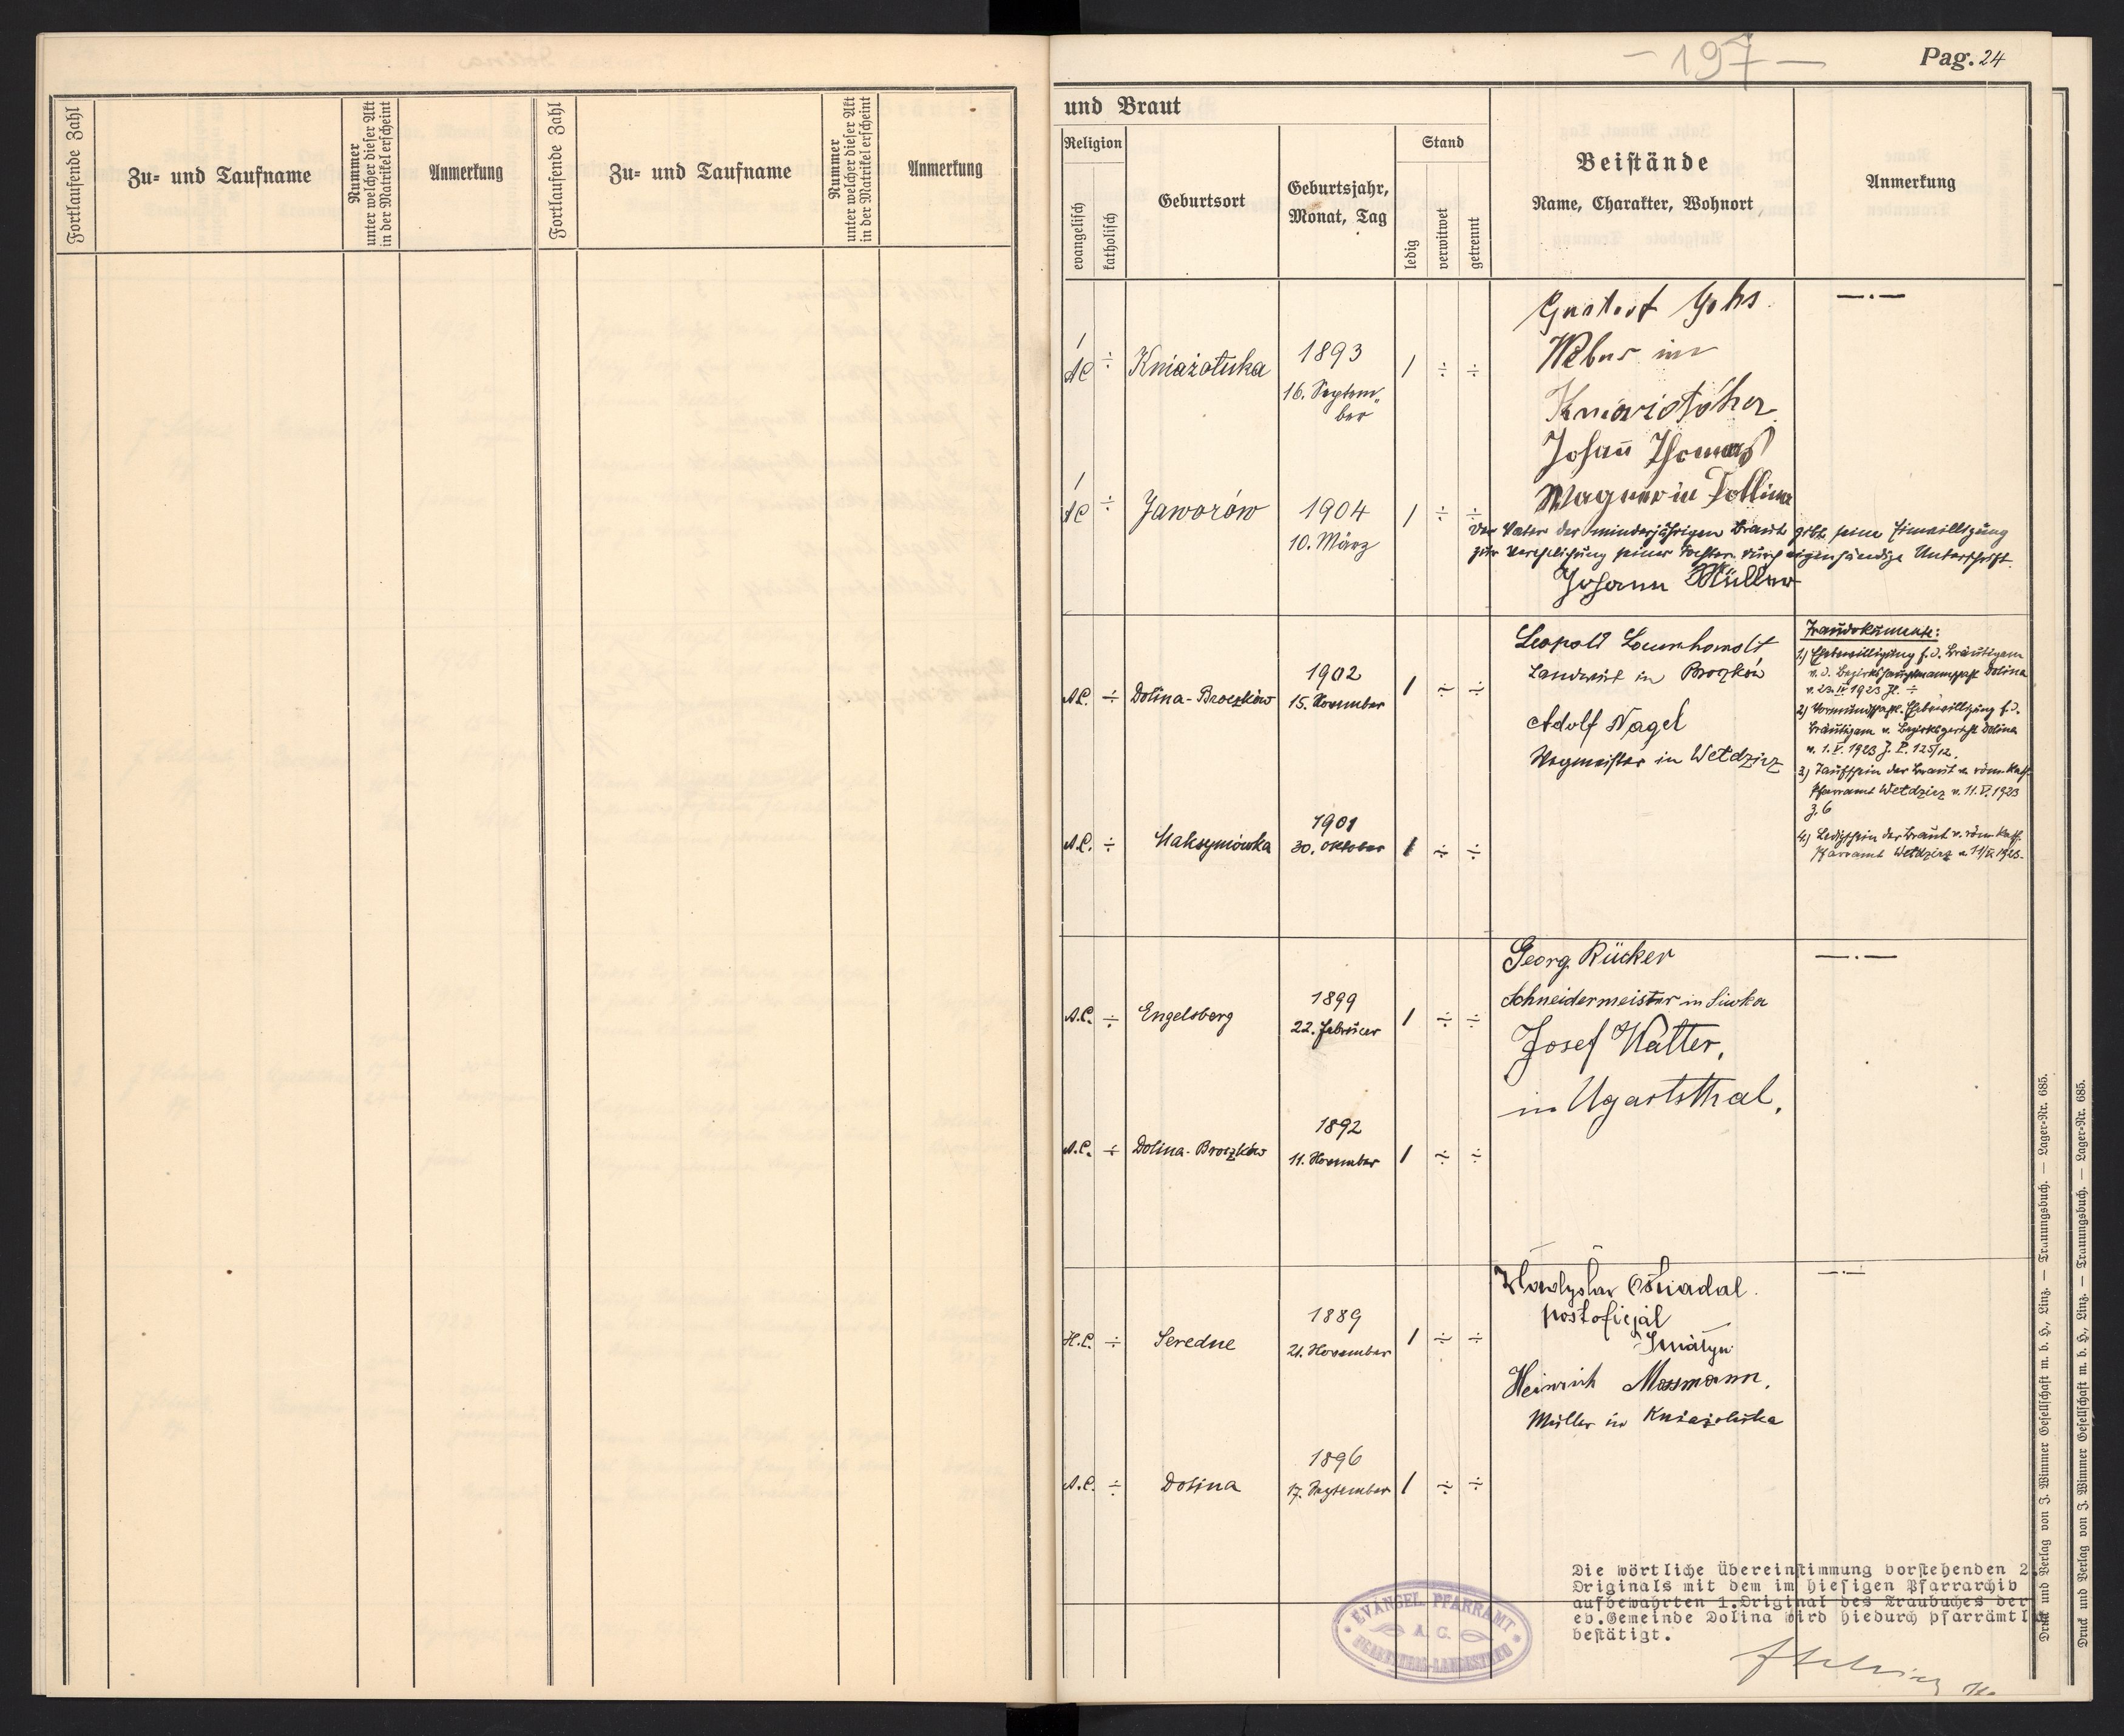 Fortlaufende Zahl
Zu- und Taufname
Nummer
unter welcher dieser Akt
in der Matrikel erscheint
Anmerkung
Fortlaufende Zahl
Zu- und Taufname
Nummer
unter welcher dieser Akt
in der Matrikel erscheint
Anmerkung
– 197 –
Pag. 24
und Braut
Religion
evangelisch
katholisch
Geburtsort
Geburtsjahr,
Monat, Tag
Stand
ledig
verwitwet
getrennt
Beistände
Name, Charakter, Wohnort
Anmerkung
1
AC ÷ Kniażołuka
1893
16. Septem-
ber
1 ÷ ÷
Weber in
Johann Thomas
—.—
1
AC ÷ Jaworów
1904
10. März
1 ÷ ÷
Wagner in Dollina
Der Vater der minderjährigen Braut gibt seine Einwilligung
zur Verehelichung seiner Tochter durch eigenhändige Unterschrift.
Johann Müller
A.C. ÷ Dolina-Broczków
1902
15. November
1 ÷ ÷
Leopold
Landwirt in Broczków
Adolf Nagel
Wegmeister in Wełdzirz
Traudokumente:
1) Ehebewilligung f. d. Bräutigam
v. d. Bezirkshauptmannschaft Dolina
v. 23. IV. 1923 Zl. ÷
2) Vormundschaftl. Ehebewilligung f. d.
Bräutigam v. Bezirksgericht Dolina
v. 1. V. 1923 Z. P. 125/12.
3) Taufschein der Braut v. röm. kath.
Pfarramt Wełdzirz v. 11. V. 1923
Z. 6
4) Ledigschein der Braut v. röm. kath.
Pfarramt Wełdzirz v. 11/V. 1923.
A.C. ÷ Maksymówka
1901
30. Oktober
1 ÷ ÷
A.C. ÷ Engelsberg
1899
22. Februar
1 ÷ ÷
Georg Rücker
Schneidermeister in Siwka
Josef Walter,
in Ugartsthal.
—.—
A.C. ÷ Dolina-Broczków
1892
11. November
1 ÷ ÷
H.C. ÷ Seredne
1889
21. November
1 ÷ ÷
postoficjał
Śniatyn
Heinrich Massmann,
Müller in Kniażoluka
—.—
A.C. ÷ Dolina
1896
17. September
1 ÷ ÷
Die wörtliche Übereinstimmung vorstehenden 2.
Originals mit dem im hiesigen Pfarrarchiv
aufbewahrten 1.Original des Traubuches der
ev.Gemeinde Dolina wird hiedurch pfarrämtl
bestätigt.
EVANGEL. PFARRAMT
A. C.
UGARTSTHAL-LANDESTREU
Druck und Verlag von J. Wimmer Gesellschaft m. b. H., Linz. — Trauungsbuch. — Lager-Nr. 685.
Druck und Verlag von J. Wimmer Gesellschaft m. b. H., Linz. — Trauungsbuch. — Lager-Nr. 685.